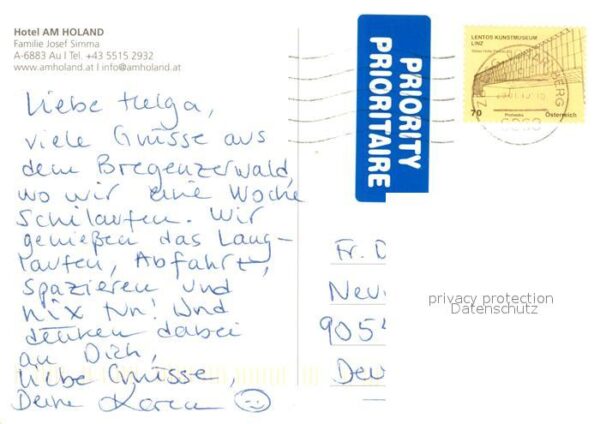 Hotel AM HOLAND
Familie Josef Simma
A-6883 Au | Tel. +43 5515 2932
www.amholand.at | info@amholand.at
Liebe Helga,
viele Grüsse aus
dem Bregenzerwald,
wo wir eine Woche
Schilaufen. Wir
genießen das Lang-
laufen, Abfahrt,
Spazieren und
nix tun! Und
denken dabei
an Dich,
liebe Grüsse,
Deine Karen
PRIORITY
PRIORITAIRE
LENTOS KUNSTMUSEUM
LINZ
70
Österreich
Fr. D
Neu
905
Deu
privacy protection
Datenschutz